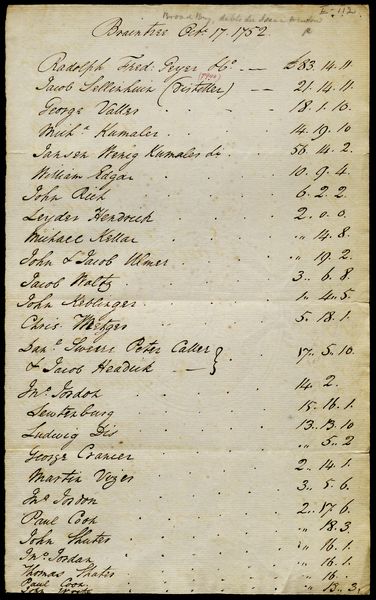 E-112
Broad Bay, debts due Isaac Winslow
Braintree Octr 17. 1752.
Radolph Fred. Geyer £83.14.11.
Jacob Sellenhuin (Distiller) 21.14.11.
George Valles 18.1.10.
Micha Kumaler 14.19.10
Jansen Wenig Kumaler do 56.14.2.
William Edgar 10.9.4.
John Rich 6.2.2.
Leyder Hendrick 2.0.0.
Michael Kellar " 14.8.
John & Jacob Ulmer " 19.2.
Jacob Waltz 3..6.8.
John Keblinger 1..4..5.
Chris Metzger 5.18.1.
Danl Swiers Peter Caller
& Jacob Headick } 17..5.10.
Jno Jordon 14.2.
Lewtenburg 15.16.1.
Ludwig Dis 13.13.10
George Cranier " 5..2
Martin Vizer 2..14.1.
Jno Jordon 3..5.6.
Paul Cook 2..17.6
John Shuter " 18.3.
Jno Jordan " 16.1.
Thomas Shuter " 16.1.
Paul Cook " 16
John " 13..3